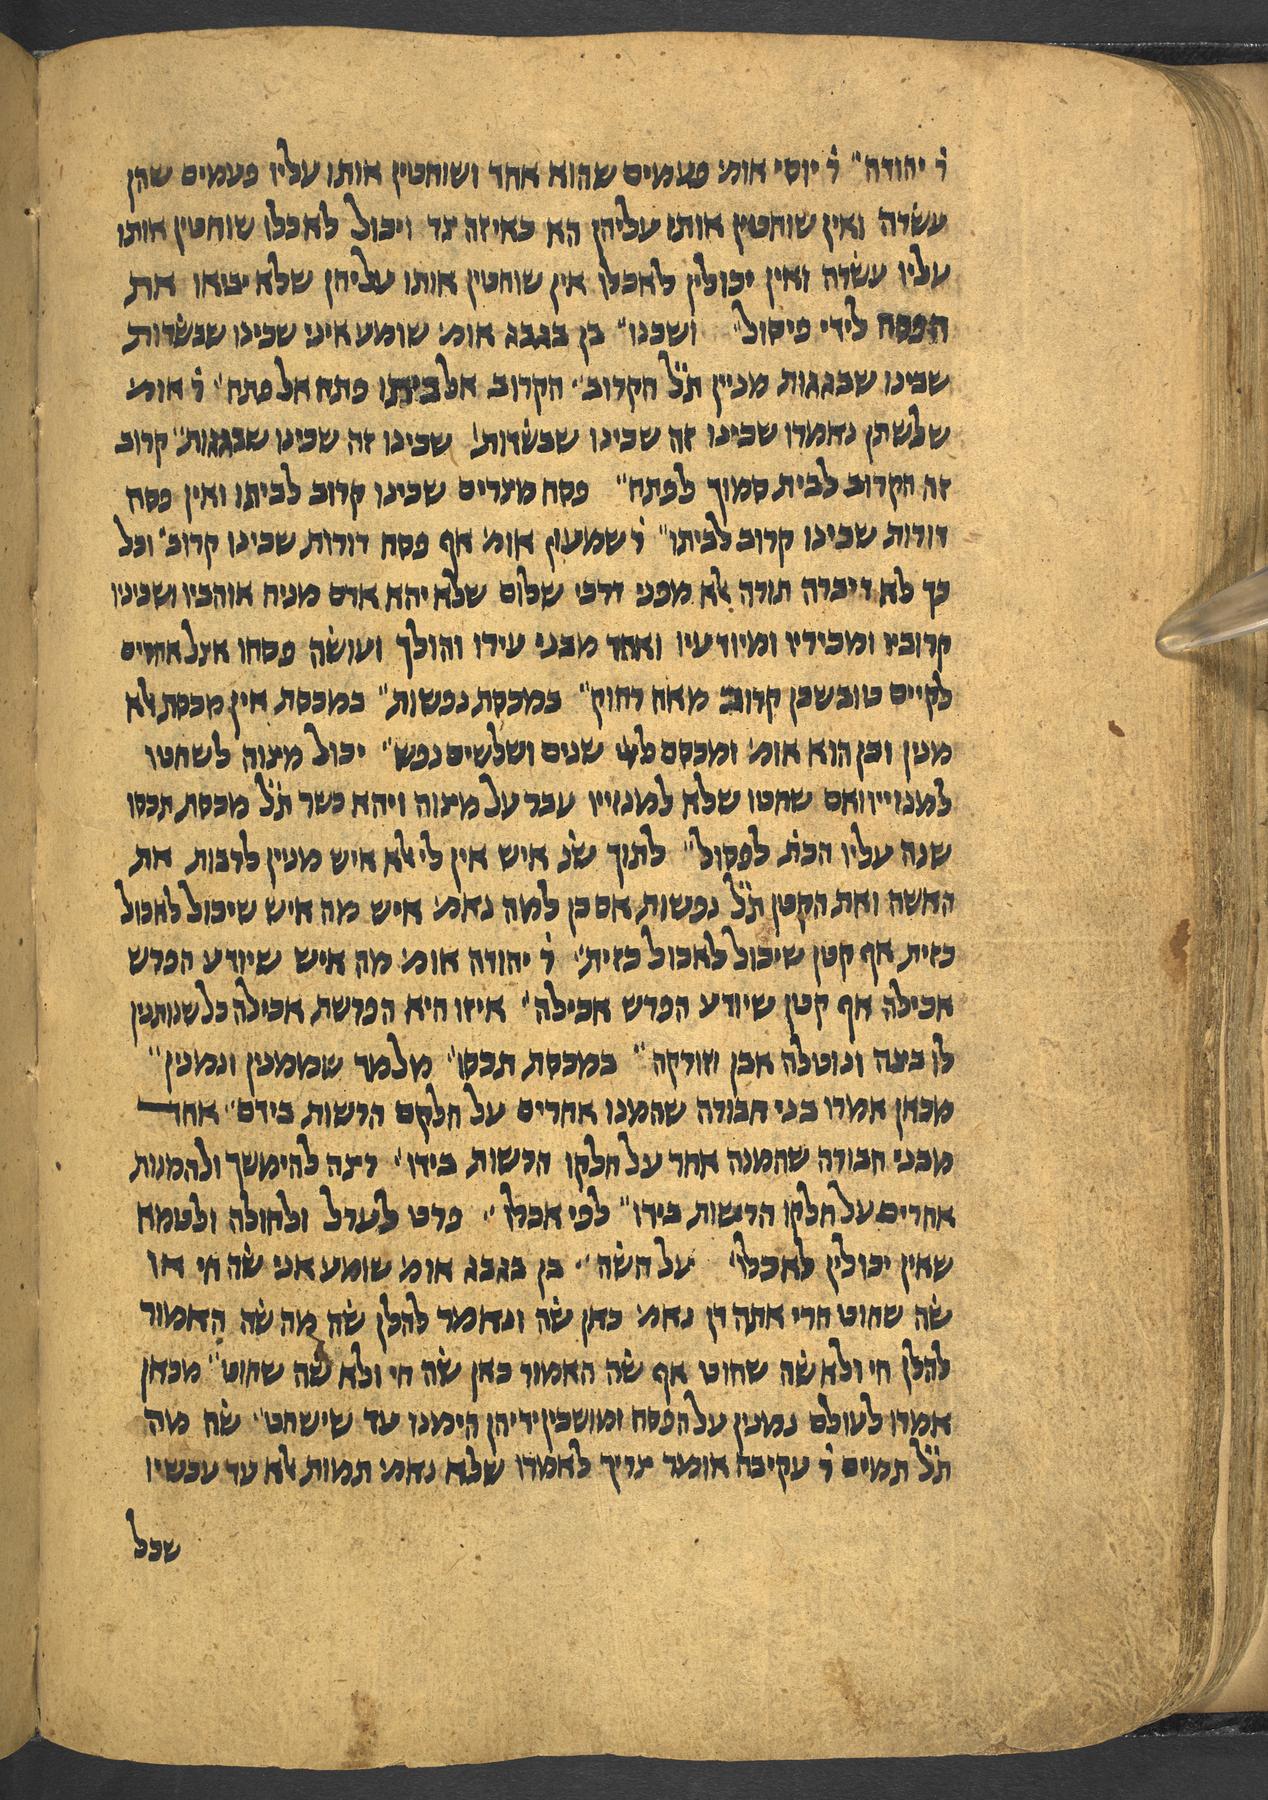 ר׳ יהודה״ ר׳ יוסי אומ׳ פעמים שהוא אחד ושוחטין אותו עליו פעמים שהן
עשרה ואין שוחטין אותו עליהן הא כאיזה צד ויכול לאכלו שוחטין אותו
עליו עשרה ואין יכולין לאכלו אין שוחטין אותו עליהן שלא יביאו את
הפסח לידי פיסול׳ ושכנו״ בן בגבג אומ׳ שומע איני שכינו שבשדות
שכינו שבגגות מניין ת״ל הקרוב״ הקרוב אל ביתו פתח אל פתח״ ר׳ אומ׳
שלשתן נאמרו שכינו זה שכינו שבשדות׳ שכינו זה שכינו שבגגות״ קרוב
זה הקרוב לבית סמוך לפתח״ פסח מצרים שכינו קרוב לביתו ואין פסח
דורות שכינו קרוב לביתו״ ר׳ שמעון אומ׳ אף פסח דורות שכינו קרוב״ וכל
כך לא דיברה תורה אלא מפני דרכי שלום שלא יהא אדם מניח אוהביו ושכיניו
קרוביו ומכיריו ומיודעיו ואחד מבני עירו והולך ועושה פסחו אצל אחרים
לקיים טוב שכן קרוב מאח רחוק״ במכסת נפשות״ במכסת אין מכסת אלא
מנין וכן הוא אומ׳ ומכסם לײ שנים ושלשים נפש״ יכול מצוה לשחטו
למנוייו ואם שחטו שלא למנוייו עבר על מצוה ויהא כשר ת״ל מכסת תכסו
שנה עליו הכת׳ לפסול״ לתוך שנ׳ איש אין לי אלא איש מנין לרבות את
האשה ואת הקטן ת״ל נפשות אם כן למה נאמ׳ איש מה איש שיכול לאכול
כזית אף קטן שיכול לאכול כזית״ ר׳ יהודה אומ׳ מה איש שיודע הפרש
אכילה אף קטן שיודע הפרש אכילה״ איזו היא הפרשת אכילה כל שנותנין
לו ביצה ונוטלה אבן וזורקה״ במכסת תכסו״ מלמד שממנין ונמנין״
מכאן אמרו בני חבורה שהמנו אחרים על חלקם הרשות בידם״ אחד
מבני חבורה שהמנה אחר על חלקו הרשות בידו״ רצה להימשך ולהמנות
אחרים על חלקו הרשות בידו״ לפי אכלו״ פרט לערל ולחולה ולטמא
שאין יכולין לאכלו׳ על השה״ בן בגבג אומ׳ שומע אני שה חי או
שה שחוט הרי אתה דן נאמ׳ כאן שה ונאמר להלן שה מה שה האמור
להלן חי ולא שה שחוט אף שה האמור כאן שה חי ולא שה שחוט״ מכאן
אמרו לעולם נמנין על הפסח ומושכין ידיהן הימנו עד שישחט״ שה מה
ת״ל תמים ר׳ עקיבה אומר צריך לאמרו שלא נאמ׳ תמות אלא עד עכשיו
שכל